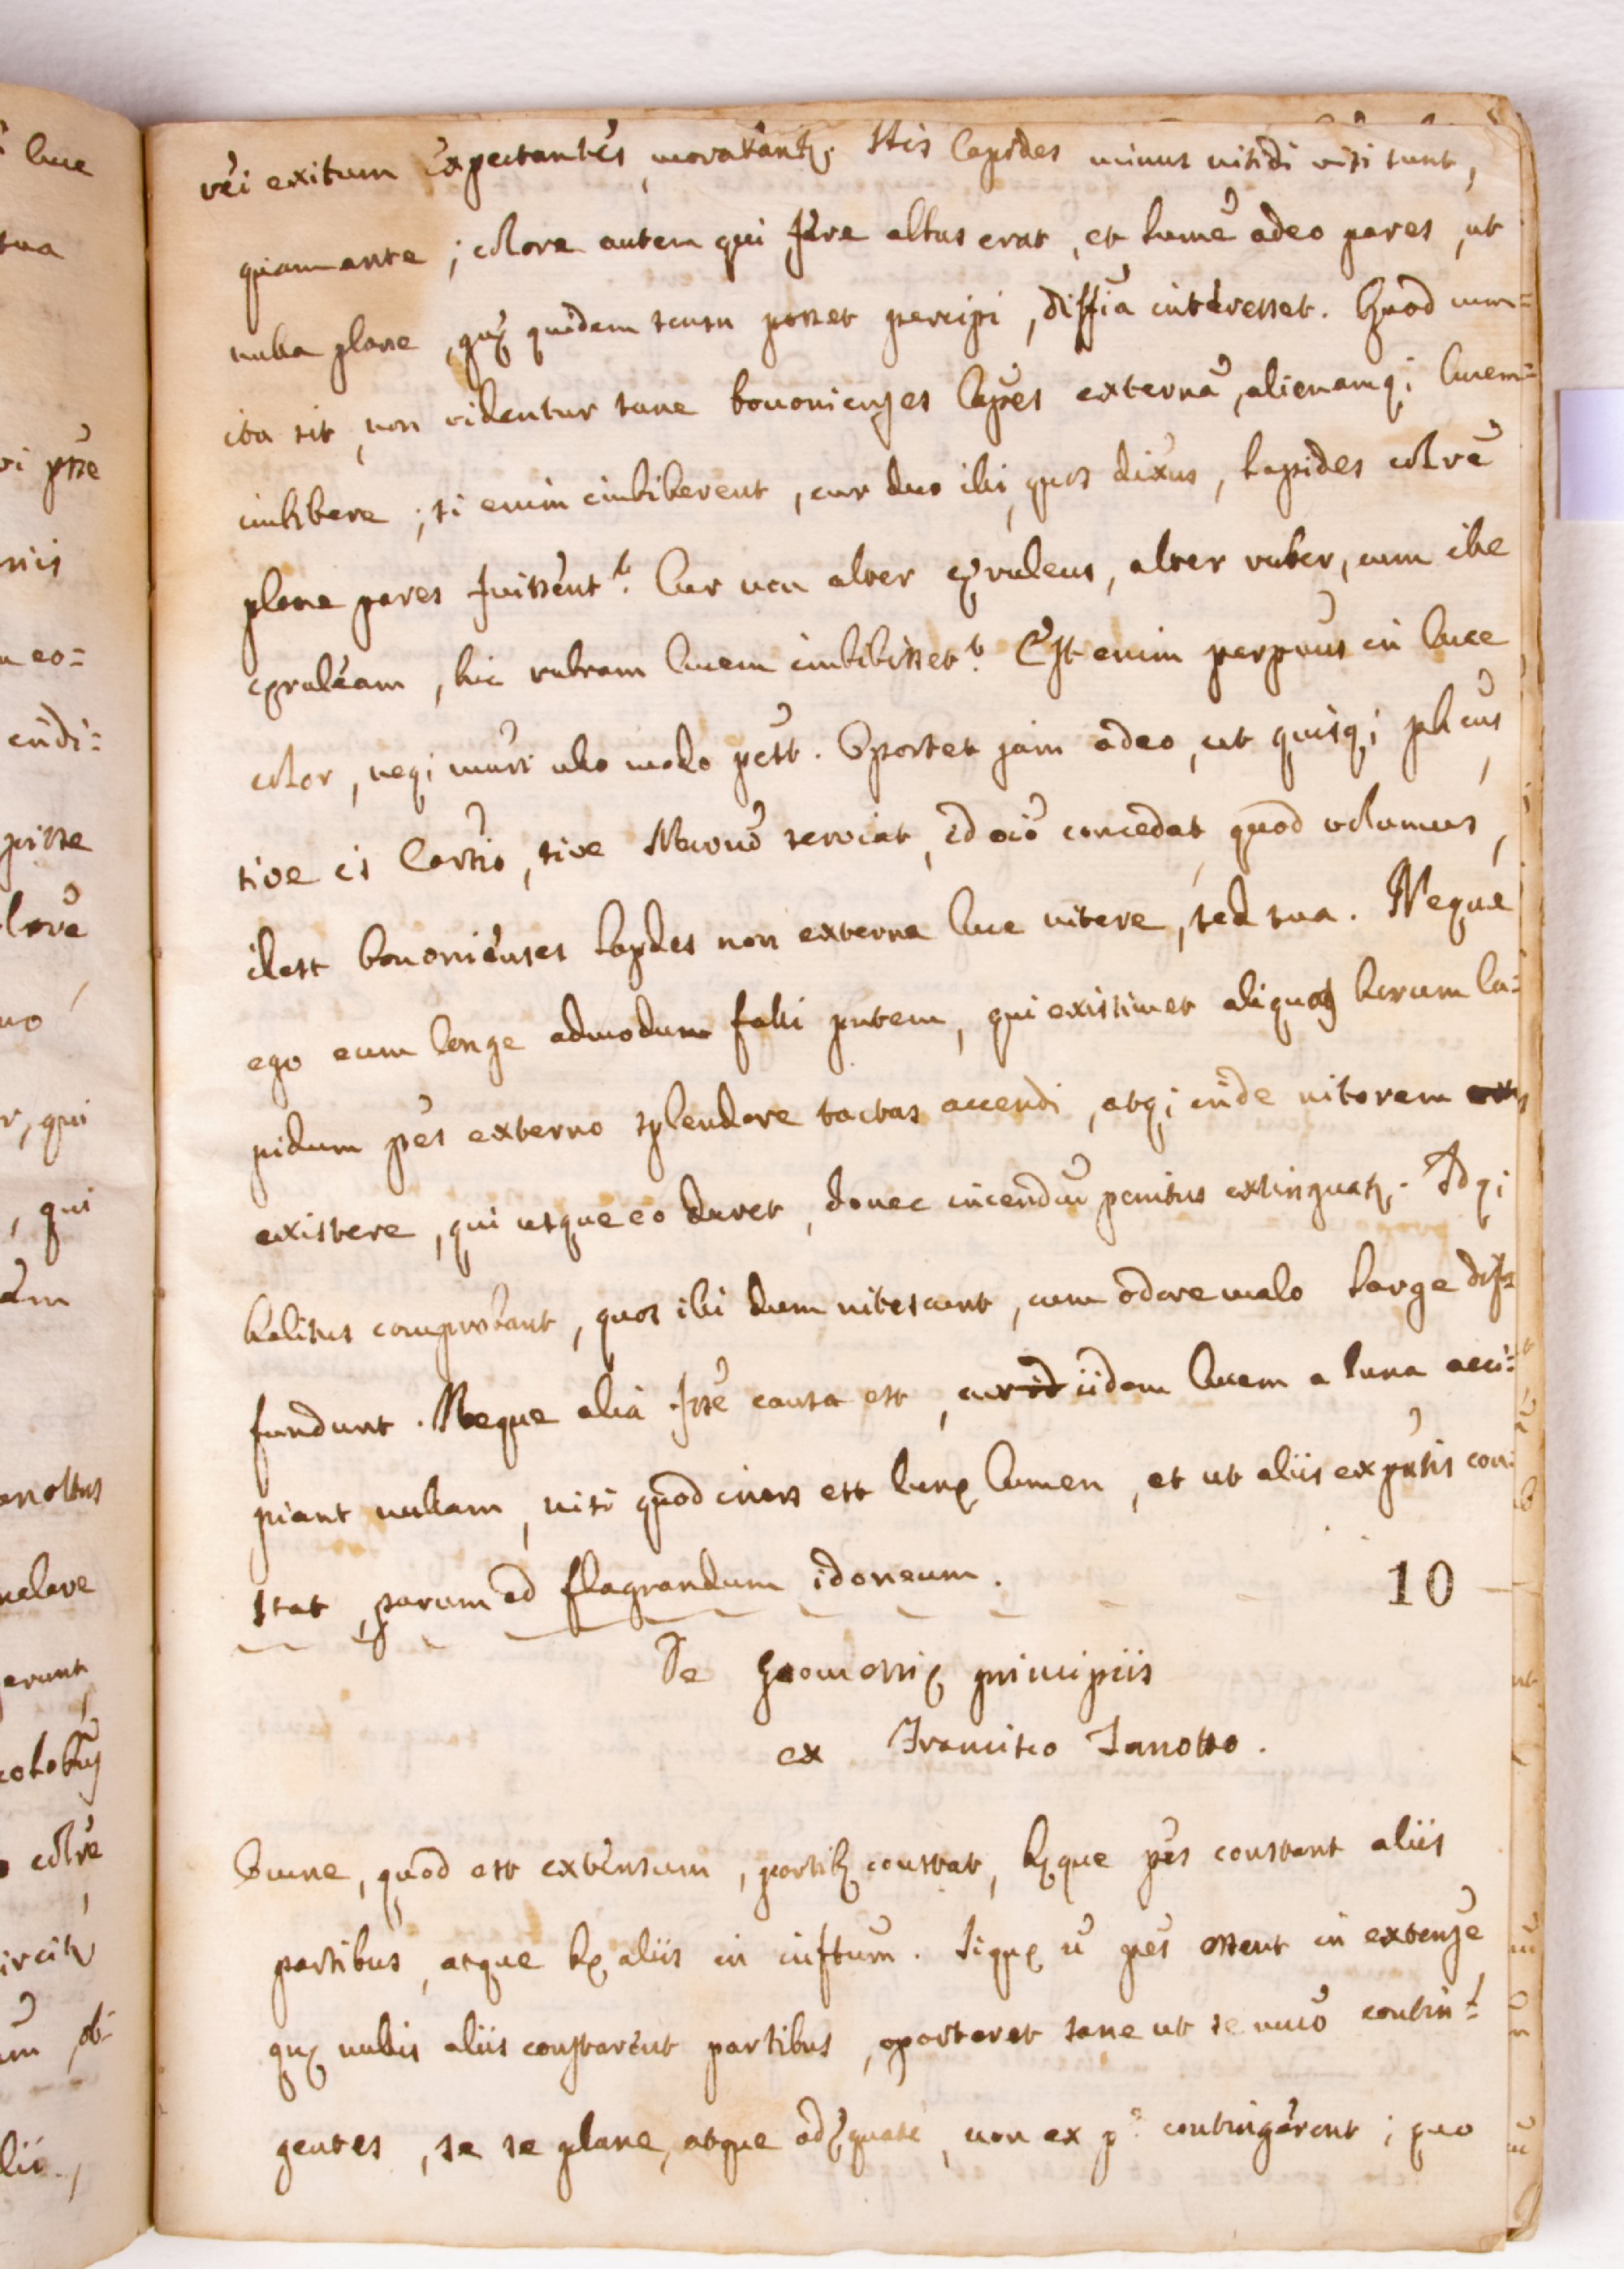 rei exitum expectantes, morabantr. His lapides minus nitidi visi sunt,
quam ante; colore autem qui fere albus erat, et lumē adeo pares, ut
nulla plane, quę quidem sensu posset percipi, diffīa interesset. Quod cum
ita sit, non videntur sane bononienses lapēs externā, alienamq; lucem
imbibere; si enim imbiberent, cur duo illi, quos dixūs, lapides colorē
plane pares fuissent? Cur non alter cęruleus, alter ruber, cum ille
cęruleam, hic rubram lucem imbibisset? Est enim perpuus in luce
color, neq; mutri ullo modo pōtt. Oportet jam adeo, ut quisq; phcus,
sive is Cartio, sive Nevvno serviat, id oīo concedat quod volumus,
idest bononienses lapdes non externa luce nitere, sed sua. Neque
ego eum longe admodum falli putem, qui existimet aliquas horum la=
pidum pēs externo splendore tactas accendi, atq; inde nitorem
existere, qui usque eo duret, donec incendiū penitus extinguatr. Idq;
halitus comprobant, quos ibi dum nitescunt, cum odore malo large dif=
fundunt. Neque alia fsse causa est, cur id iidem lucem a luna acci=
piant nullam, nisi quod iners est lunę lumen, et ut aliis exputis con=
stat, parum ad flagrandum idoneum.
10
De Geometrię principiis
ex Francisco Zanotto.
Omne, quod est extensum, partib; constat, hęque pēs constant aliis
partibus, atque hę aliis in inftum. Siquę ū pēs essent in extense,
quę nullis aliis constarent partibus, oporteret sane ut se mūo contin=
gentes, se se plane, atque adęquate, non ex pe contingerent; quo